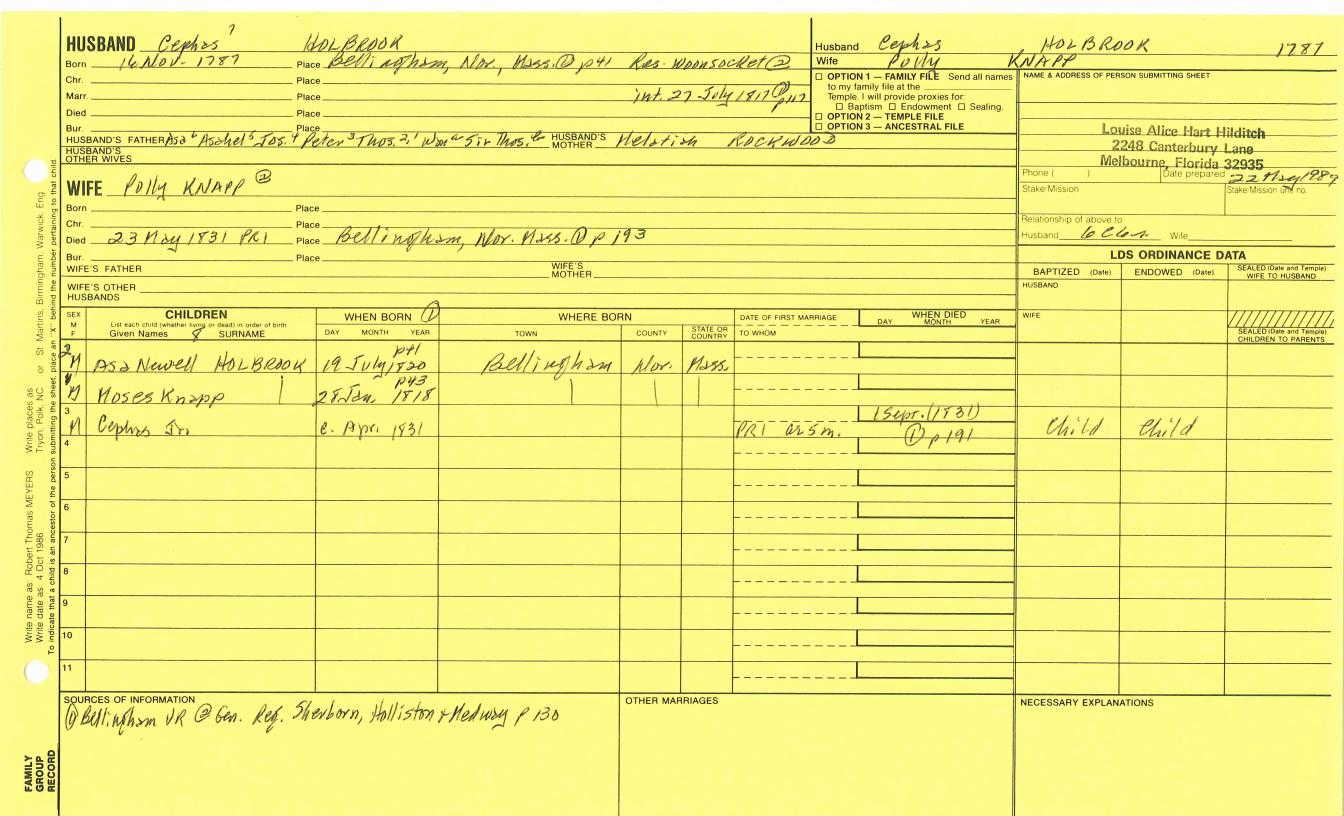 HUSBAND Cephas 7 HOLBROOK
Born 16 Nov. 1787 Place Bellingham, Nor., Mass. ① p41 Res. Woonsocket ②
Chr. Place
Marr. Place int. 27 July 1817 ① p117
Died Place
Bur. Place
HUSBAND'S FATHER Asa 6 Asahel 5 Jos. 4 Peter 3 Thos. 2, 1 Wm a Sir Thos. b HUSBAND'S MOTHER Melatiah ROCKWOOD
HUSBAND'S OTHER WIVES
Husband Cephas HOLBROOK 1787
Wife Polly KNAPP
☐ OPTION 1 — FAMILY FILE Send all names
to my family file at the
Temple. I will provide proxies for:
☐ Baptism ☐ Endowment ☐ Sealing.
☐ OPTION 2 — TEMPLE FILE
☐ OPTION 3 — ANCESTRAL FILE
NAME & ADDRESS OF PERSON SUBMITTING SHEET
Louise Alice Hart Hilditch
2248 Canterbury Lane
Melbourne, Florida 32935
Phone ( ) Date prepared 22 May 1989
Stake/Mission Stake/Mission unit no.
Relationship of above to
Husband 6C6r Wife
WIFE Polly KNAPP ②
Born Place
Chr. Place
Died 23 May 1831 PR1 Place Bellingham, Nor. Mass. ① p 193
Bur. Place
WIFE'S FATHER WIFE'S MOTHER
WIFE'S OTHER HUSBANDS
LDS ORDINANCE DATA
BAPTIZED (Date) ENDOWED (Date) SEALED (Date and Temple) WIFE TO HUSBAND
HUSBAND
WIFE
SEALED (Date and Temple) CHILDREN TO PARENTS
SEX M F
CHILDREN
List each child (whether living or dead) in order of birth
Given Names 8 SURNAME
WHEN BORN ①
DAY MONTH YEAR
WHERE BORN
TOWN COUNTY STATE OR COUNTRY
DATE OF FIRST MARRIAGE
TO WHOM
WHEN DIED
DAY MONTH YEAR
2 M Asa Newell HOLBROOK 19 July 1820 p41 Bellingham Nor. Mass.
1 M Moses Knapp | 28 Jan. 1818 p43 | | |
3 M Cephas Jr. c. Apr. 1831 PR1 ae 5m. 1 Sept. (1831) ① p191 Child Child
4
5
6
7
8
9
10
11
SOURCES OF INFORMATION
① Bellingham VR ② Gen. Reg. Sherborn, Holliston & Medway p 130
OTHER MARRIAGES
NECESSARY EXPLANATIONS
Write name as Robert Thomas MEYERS Write places as Tryon, Polk, NC or St Martins, Birmingham, Warwick, Eng
Write date as 4 Oct 1986
To indicate that a child is an ancestor of the person submitting the sheet, place an "X" behind the number pertaining to that child.
FAMILY
GROUP
RECORD